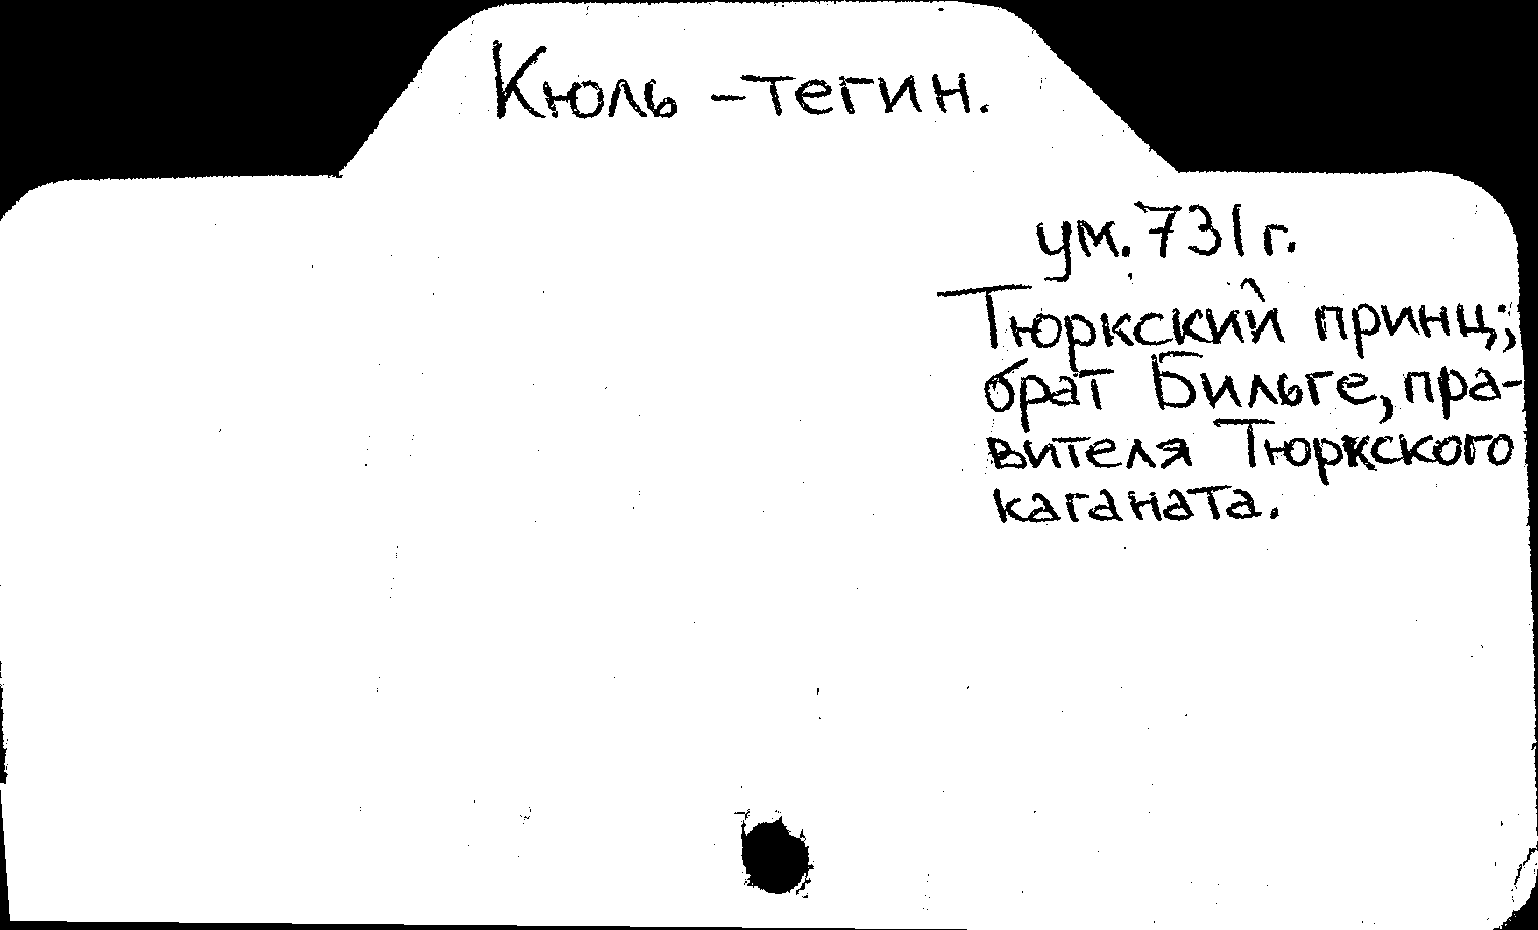 Кюль-тегин.
ум. 731 г.
Тюркский принц;
брат Бильге, пра-
вителя Тюркского
каганата.